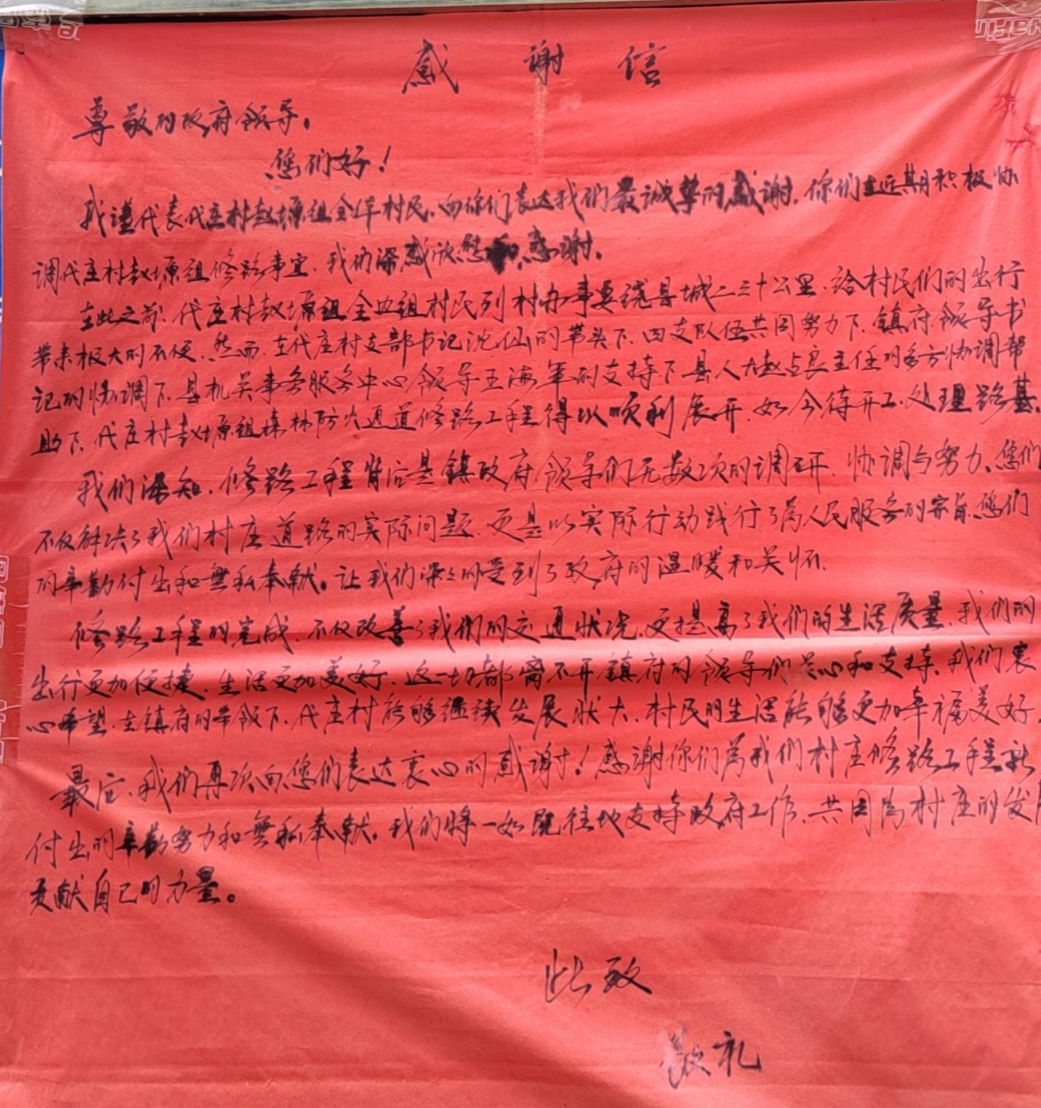 感谢信
尊敬的政府领导。
您们好！
我谨代表代庄村赵塬组全体村民，向你们表达我们最诚挚的感谢，你们在近期积极协
调代庄村赵塬组修路事宜，我们深感欣慰和感谢。
在此之前，代庄村赵塬组全组村民到村办事要绕县城二三十公里，给村民们的出行
带来极大的不便，然而，在代庄村支部书记沈仙的带头下，四支队伍共同努力下，镇府领导书
记的协调下，县机关事务服务中心领导王海军的支持下县人大赵占良主任的多方协调帮
助下，代庄村赵塬组森林防火通道修路工程得以顺利展开，如今待开工，处理路基。
我们深知，修路工程背后是镇政府领导们无数次的调研，协调与努力、您们
不仅解决了我们村庄道路的实际问题，更是以实际行动践行了为人民服务的宗旨，您们
的辛勤付出和无私奉献。让我们深深的受到了政府的温暖和关怀。
修路工程的完成，不仅改善了我们的交通状况，更提高了我们的生活质量，我们的
出行更加便捷，生活更加美好，这一切都离不开镇府的领导们关心和支持，我们衷
心希望，在镇府的带领下，代庄村能够继续发展壮大，村民的生活能够更加幸福美好。
最后，我们再次向您们表达衷心的感谢！感谢你们为我们村庄修路工程所
付出的辛勤努力和无私奉献，我们将一如既往地支持政府工作，共同为村庄的发
贡献自己的力量。
此致
敬礼